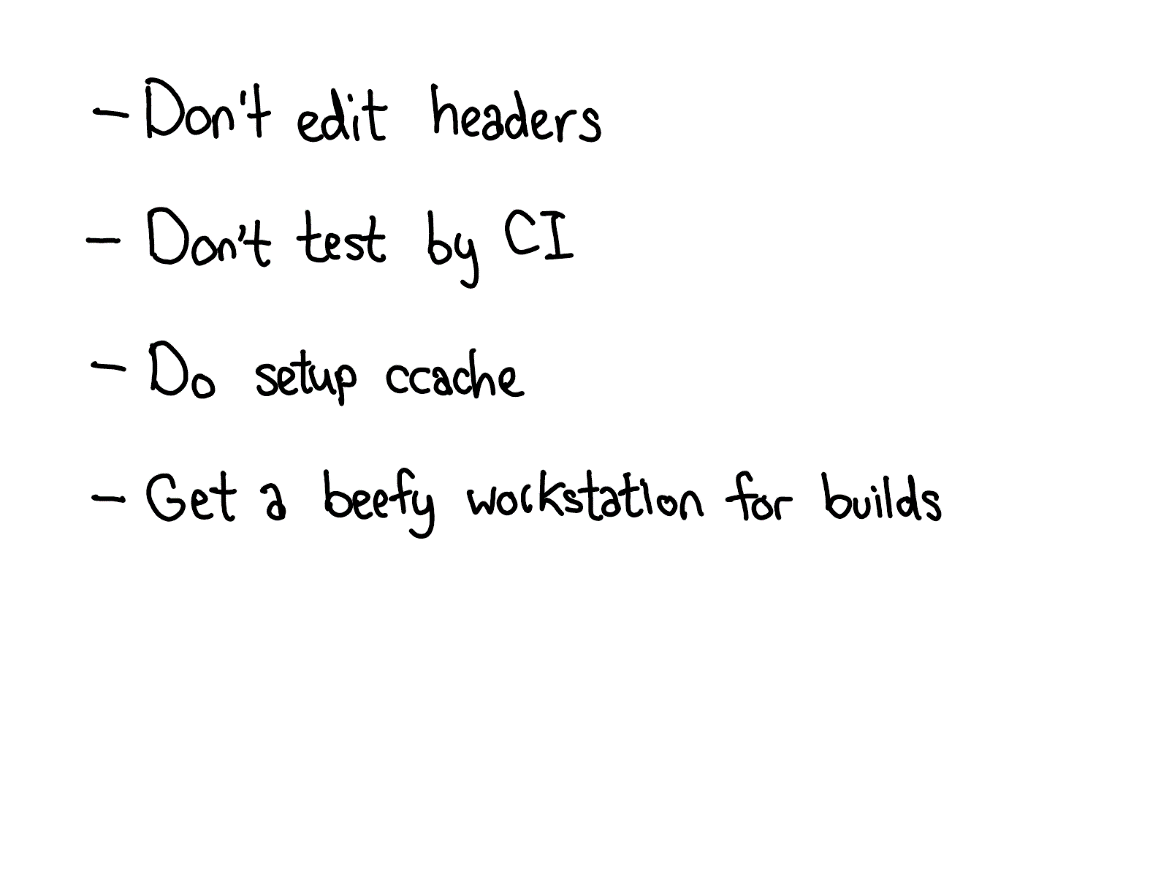 - Don't edit headers
- Don't test by CI
- Do setup ccache
- Get a beefy workstation for builds